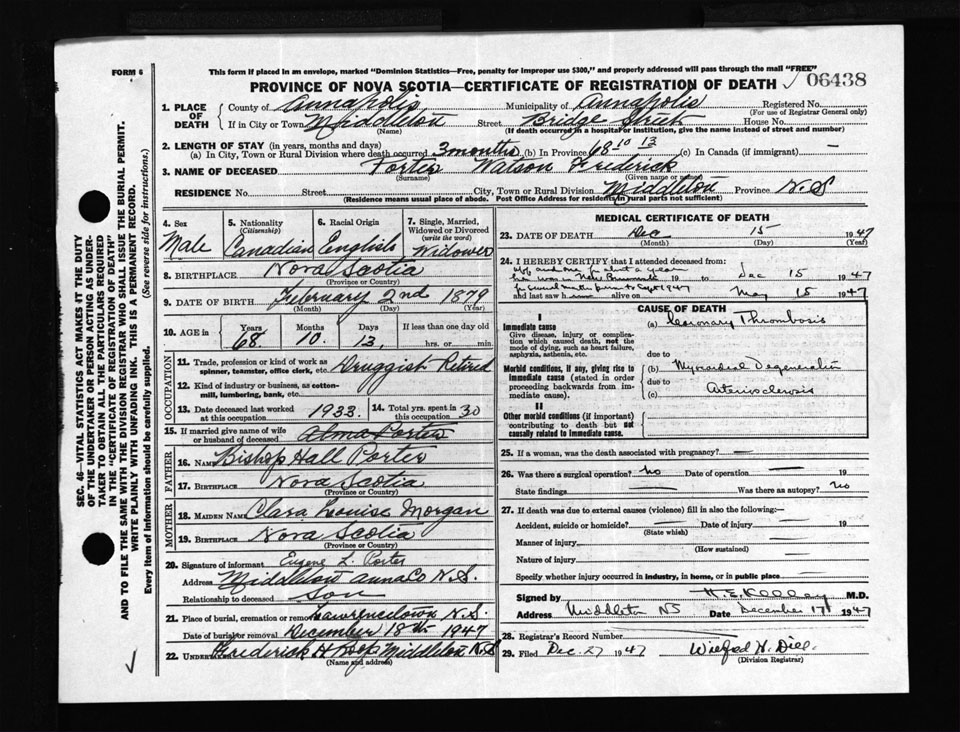 FORM 6
This form if placed in an envelope, marked "Dominion Statistics—Free, penalty for improper use $300," and properly addressed will pass through the mail "FREE"
PROVINCE OF NOVA SCOTIA—CERTIFICATE OF REGISTRATION OF DEATH
06438
SEC. 46—VITAL STATISTICS ACT MAKES IT THE DUTY
OF THE UNDERTAKER OR PERSON ACTING AS UNDER-
TAKER TO OBTAIN ALL THE PARTICULARS REQUIRED
IN THE "CERTIFICATE OF REGISTRATION OF DEATH"
AND TO FILE THE SAME WITH THE DIVISION REGISTRAR WHO SHALL ISSUE THE BURIAL PERMIT.
WRITE PLAINLY WITH UNFADING INK. THIS IS A PERMANENT RECORD.
Every item of information should be carefully supplied. (See reverse side for instructions.)
1. PLACE OF DEATH
County of Annapolis Municipality of Annapolis Registered No.
(For use of Registrar General only)
If in City or Town Middleton Street Bridge Street House No.
(Name) (If death occurred in a hospital or institution, give the name instead of street and number)
2. LENGTH OF STAY (in years, months and days)
(a) In City, Town or Rural Division where death occurred 3 months (b) In Province 68 10 13 (c) In Canada (if immigrant) —
3. NAME OF DECEASED Porter Watson Frederick
(Surname) (Given name or names)
RESIDENCE No. Street City, Town or Rural Division Middleton Province N.S
(Residence means usual place of abode. Post Office Address for residents in rural parts not sufficient)
4. Sex Male
5. Nationality (Citizenship) Canadian
6. Racial Origin English
7. Single, Married, Widowed or Divorced (write the word) Widower
8. BIRTHPLACE Nova Scotia
(Province or Country)
9. DATE OF BIRTH February 2nd 1879
(Month) (Day) (Year)
10. AGE in Years 68 Months 10 Days 13 If less than one day old hrs. or min.
OCCUPATION
11. Trade, profession or kind of work as spinner, teamster, office clerk, etc. Druggist Retired
12. Kind of industry or business, as cotton-mill, lumbering, bank, etc.
13. Date deceased last worked at this occupation 1933. 14. Total yrs. spent in this occupation 30
15. If married give name of wife or husband of deceased Alma Porter
FATHER
16. NAME Bishop Hall Porter
17. BIRTHPLACE Nova Scotia
(Province or Country)
MOTHER
18. MAIDEN NAME Clara Louise Morgan
19. BIRTHPLACE Nova Scotia
(Province or Country)
20. Signature of informant Eugene L. Porter
Address Middleton Anna Co N.S.
Relationship to deceased Son
21. Place of burial, cremation or removal Lawrencetown N.S.
Date of burial or removal December 18th 1947
22. Undertaker Frederick H Roop Middleton N.S
(Name and address)
MEDICAL CERTIFICATE OF DEATH
23. DATE OF DEATH Dec 15 1947
(Month) (Day) (Year)
24. I HEREBY CERTIFY that I attended deceased from:
off and on for about a year
19 to Dec 15 1947
for several months prior to Sept 1947
and last saw h alive on May 15 1947
CAUSE OF DEATH
I
Immediate cause
Give disease, injury or complication which caused death, not the mode of dying, such as heart failure, asphyxia, asthenia, etc.
(a) Coronary Thrombosis
due to
Morbid conditions, if any, giving rise to immediate cause (stated in order proceeding backwards from immediate cause).
(b) Myocardial Degeneration
due to
(c) Arteriosclerosis
II
Other morbid conditions (if important) contributing to death but not causally related to immediate cause.
25. If a woman, was the death associated with pregnancy? —
26. Was there a surgical operation? No Date of operation — 19
State findings — Was there an autopsy? No
27. If death was due to external causes (violence) fill in also the following:—
Accident, suicide or homicide? — Date of injury — 19
(State which)
Manner of injury —
(How sustained)
Nature of injury —
Specify whether injury occurred in industry, in home, or in public place —
Signed by H.E. Kelley M.D.
Address Middleton NS Date December 17th 1947
28. Registrar's Record Number
29. Filed Dec. 27 1947 Wilfred H. Dill.
(Division Registrar)